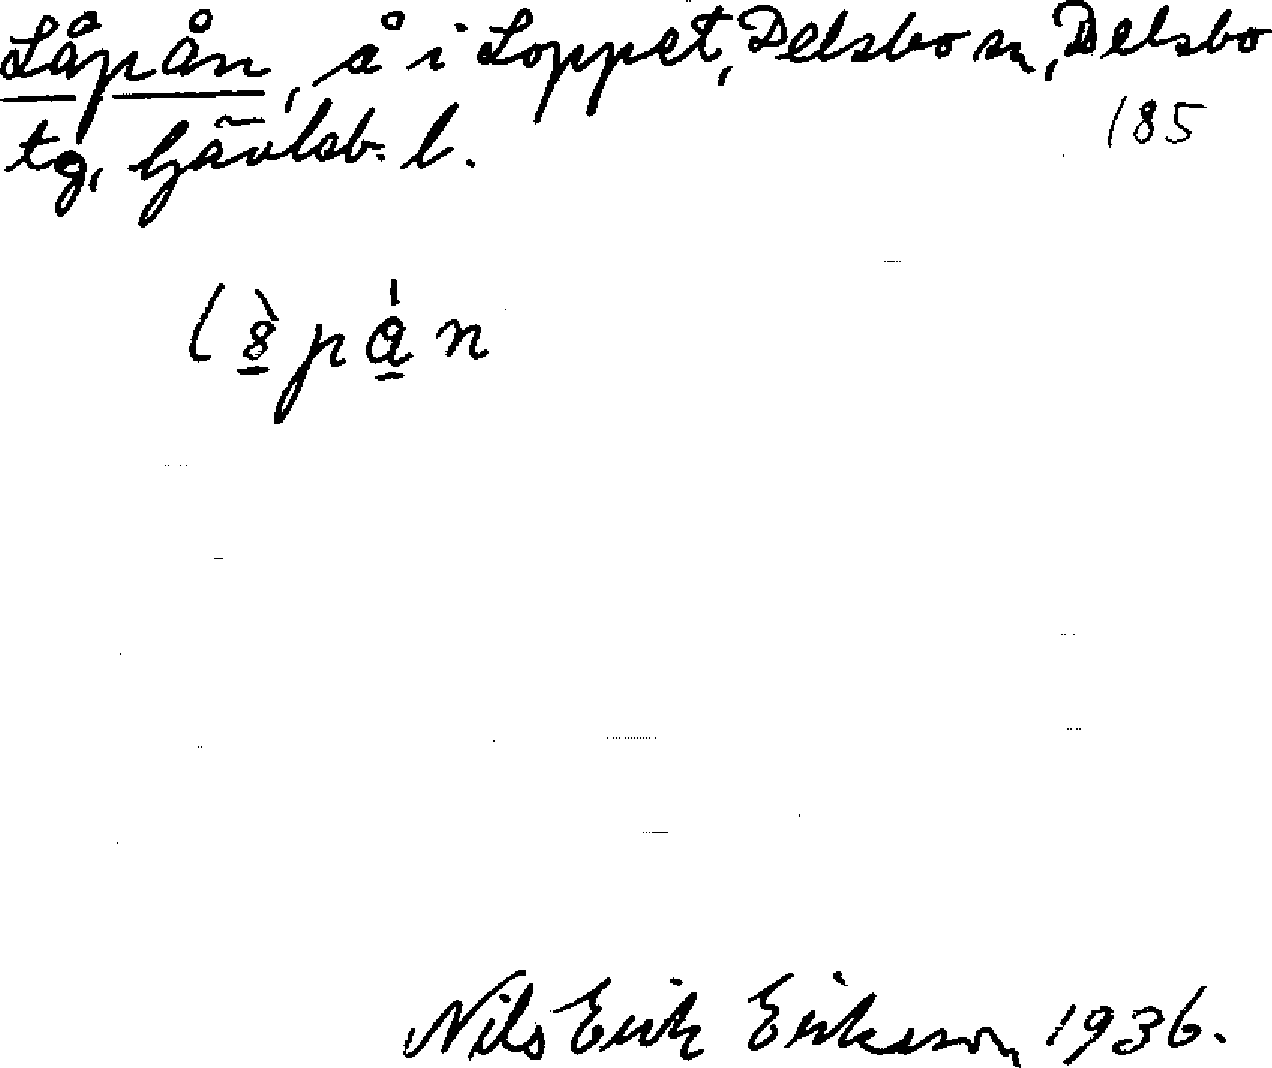 Låpån, å i Loppet, Delsbo sn, Delsbo
185
tg, Gävleb. l.
Nils Erik Eriksson 1936.